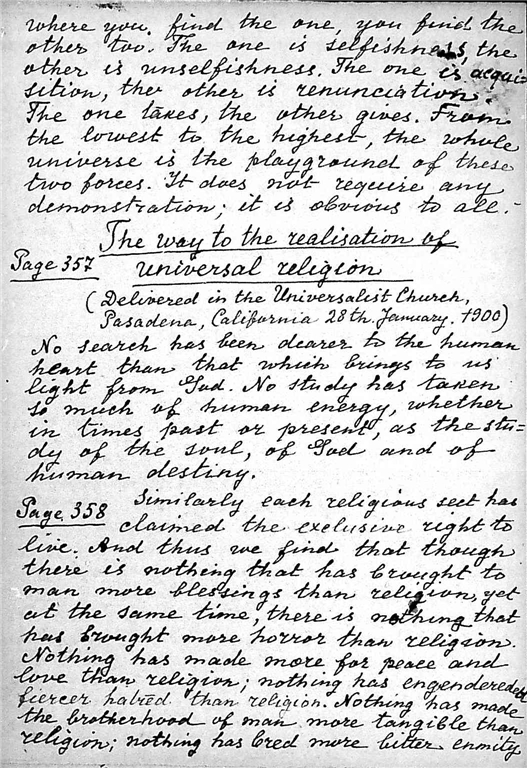 where you find the one, you find the
other too. The one is selfishness, the
other is unselfishness. The one is acqui=
sition, the other is renunciation.
The one takes, the other gives. From
the lowest to the highest, the whole
universe is the playground of these
two forces. It does not require any
demonstration; it is obvious to all.
The way to the realisation of
Page 357 universal religion
(Delivered in the Universalist Church,
Pasadena, California 28th. January. 1900)
No search has been dearer to the human
heart than that which brings to us
light from God. No study has taken
so much of human energy, whether
in times past or present, as the stu=
dy of the soul, of God and of
human destiny.
Page 358 Similarly each religious sect has
claimed the exclusive right to
live. And thus we find that though
there is nothing that has brought to
man more blessings than religion, yet
at the same time, there is nothing that
has brought more horror than religion.
Nothing has made more for peace and
love than religion; nothing has engendered
fiercer hatred than religion. Nothing has made
the brotherhood of man more tangible than
religion; nothing has bred more bitter enmity